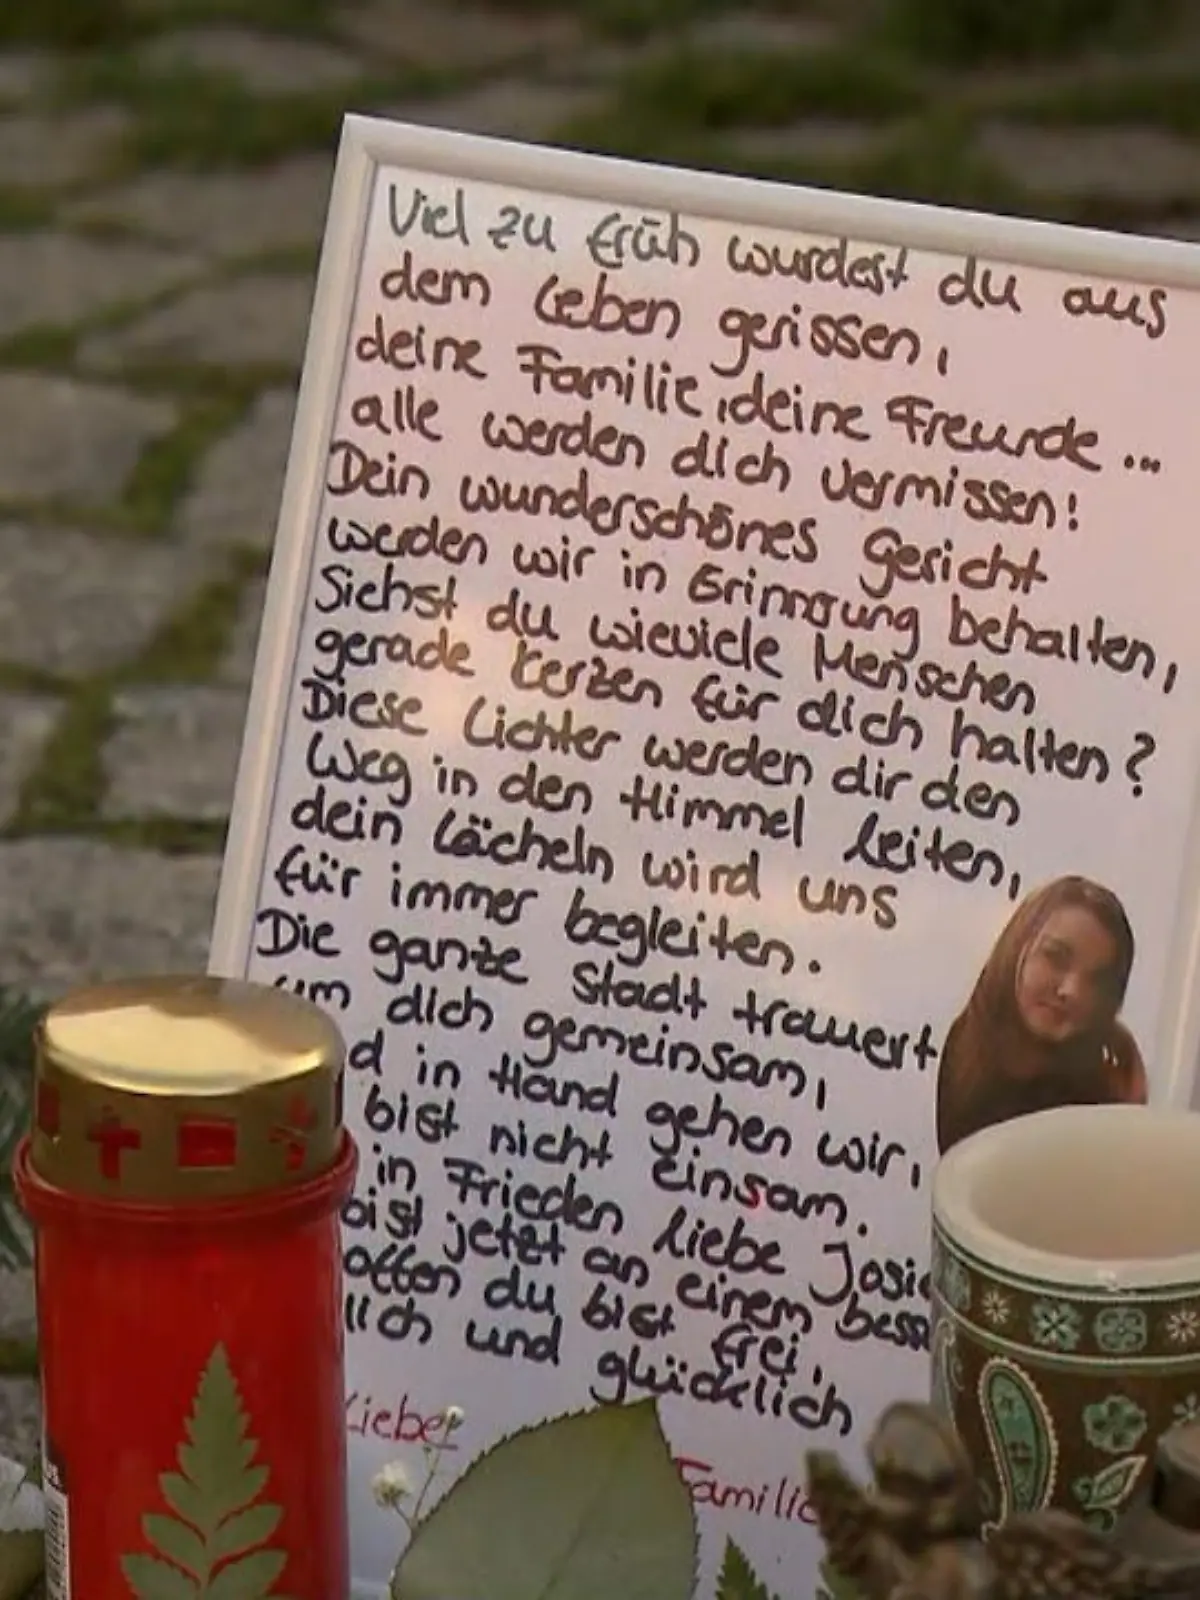 Viel zu früh wurdest du aus
dem Leben gerissen,
deine Familie, deine Freunde...
alle werden dich vermissen!
Dein wunderschönes Gericht
werden wir in Erinnerung behalten,
Siehst du wieviele Menschen
gerade Kerzen für dich halten?
Diese Lichter werden dir den
Weg in den Himmel leiten,
dein Lächeln wird uns
für immer begleiten.
Die ganze Stadt trauert
um dich gemeinsam,
d in Hand gehen wir,
bist nicht einsam.
in Frieden liebe Josie
bist jetzt an einem bess
offen du bist frei,
lich und glücklich
Liebe
Familie